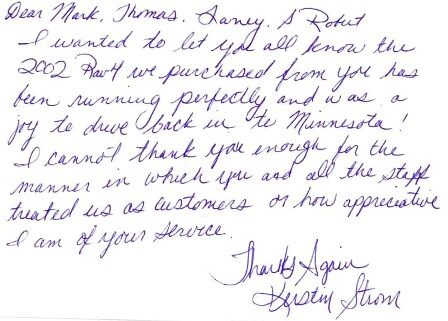 Dear Mark, Thomas, Laney, & Robert
I wanted to let you all know the
2002 Rav4 we purchased from you has
been running perfectly and was a
joy to drive back in to Minnesota!
I cannot thank you enough for the
manner in which you and all the staff
treated us as customers or how appreciative
I am of your service.
Thanks Again
Kerstin Strom